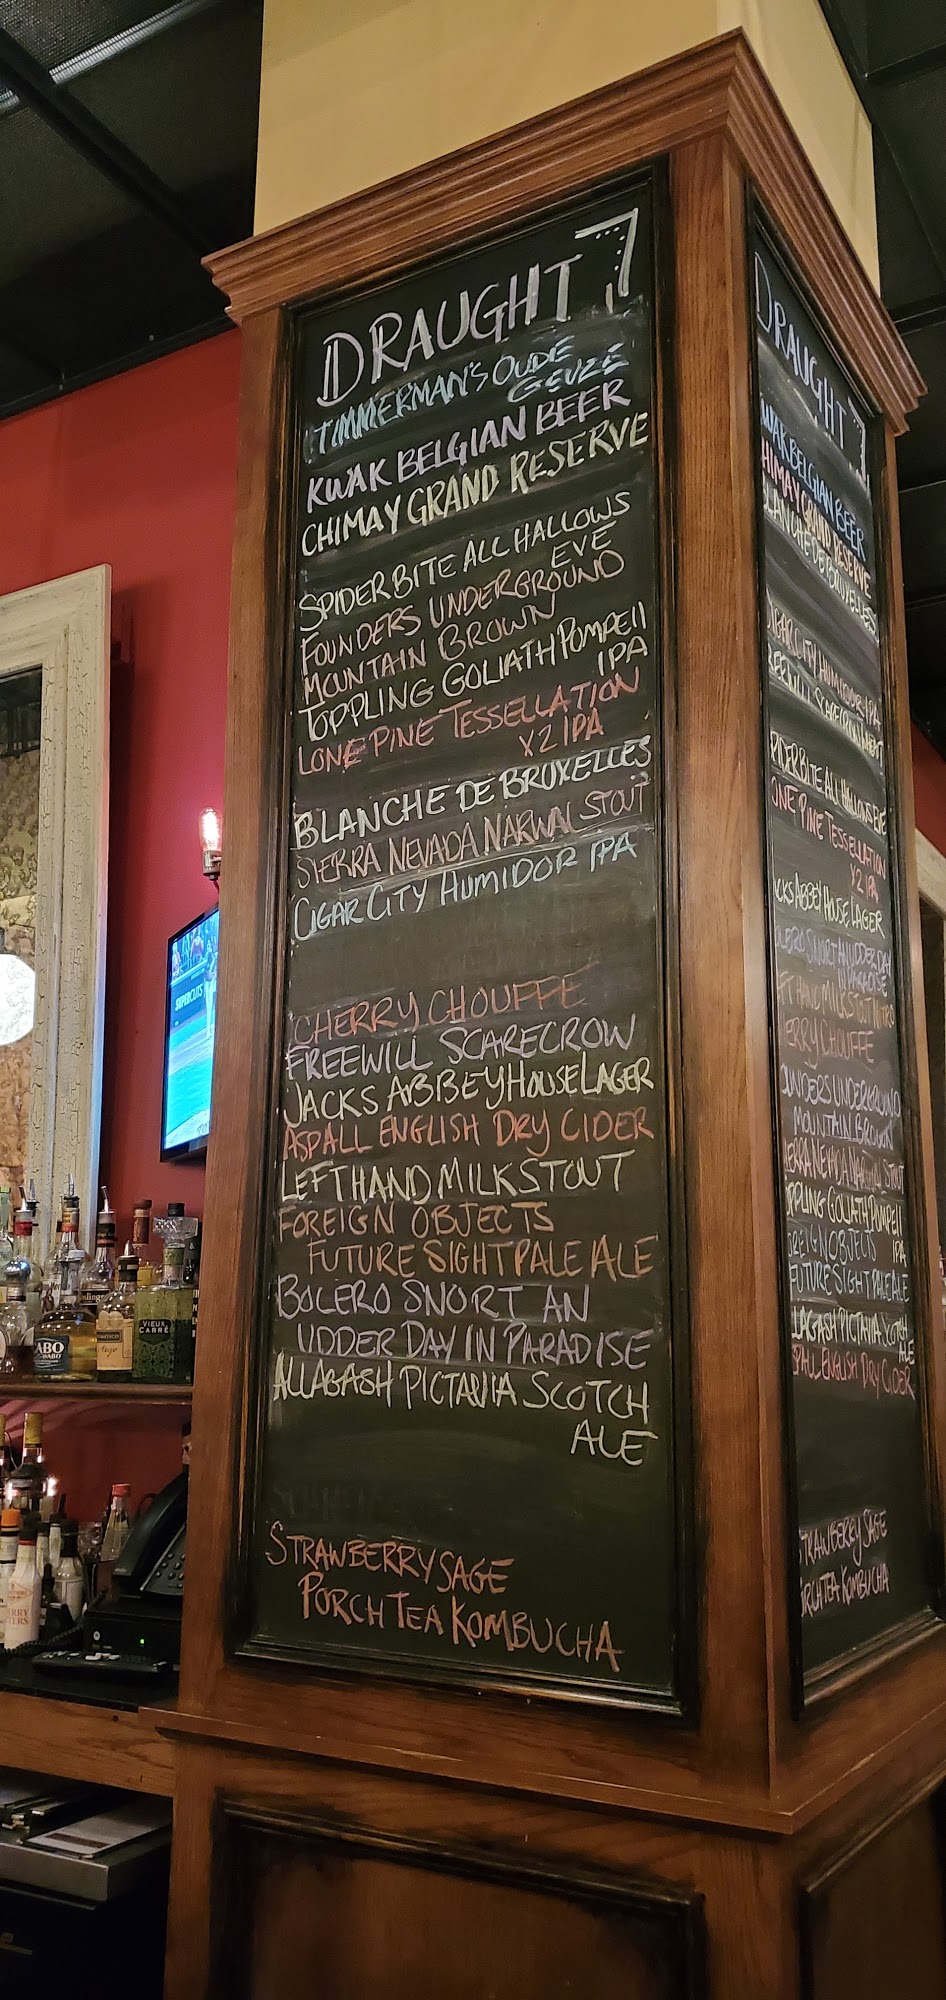 DRAUGHT
TIMMERMAN'S OUDE
GEUZE
KWAK BELGIAN BEER
CHIMAY GRAND RESERVE
SPIDER BITE ALL HALLOWS
EVE
FOUNDERS UNDERGROUND
MOUNTAIN BROWN
TOPPLING GOLIATH POMPEII
IPA
LONE PINE TESSELLATION
X2 IPA
BLANCHE DE BRUXELLES
SIERRA NEVADA NARWAL STOUT
CIGAR CITY HUMIDOR IPA
CHERRY CHOUFFE
FREEWILL SCARECROW
JACKS ABBEY HOUSE LAGER
ASPALL ENGLISH DRY CIDER
LEFTHAND MILK STOUT
FOREIGN OBJECTS
FUTURE SIGHT PALE ALE
BOLERO SNORT AN
UDDER DAY IN PARADISE
ALLAGASH PICTAVIA SCOTCH
ALE
STRAWBERRY SAGE
PORCH TEA KOMBUCHA
DRAUGHT
WAK BELGIAN BEER
HIMAY GRAND RESERVE
LANCHE DE BRUXELLES
CITY HUMIDOR IPA
SCARECROW
PIDER BITE ALL HALLOWS EVE
ONE PINE TESSELLATION
X2 IPA
CKS ABBEY HOUSE LAGER
LERO SNORT AN UDDER DAY
IN PARADISE
FT HAND MILK STOUT NITRO
ERRY CHOUFFE
OUNDERS UNDERGROUND
MOUNTAIN BROWN
ERRA NEVADA NARWAL STOUT
PPLING GOLIATH POMPEII
IPA
REIGN OBJECTS
FUTURE SIGHT PALE ALE
LAGASH PICTAVIA SCOTCH
ALE
SPALL ENGLISH DRY CIDER
TRAWBERRY SAGE
ORCH TEA KOMBUCHA
SUPERCUTS
VIEUX
CARRÉ